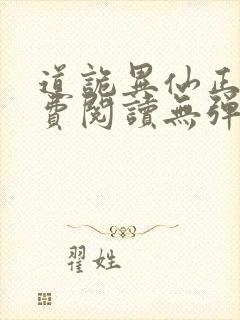 道詭異仙正
費閱讀無彈
翟姓